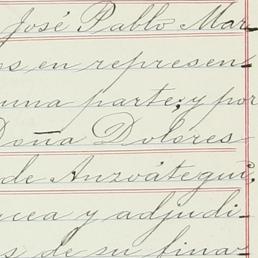 José Pablo Mar-
os en represen-
una parte; y por
Doña Dolores
de Anzoátegui,
uca y adjudi-
s de su finar-